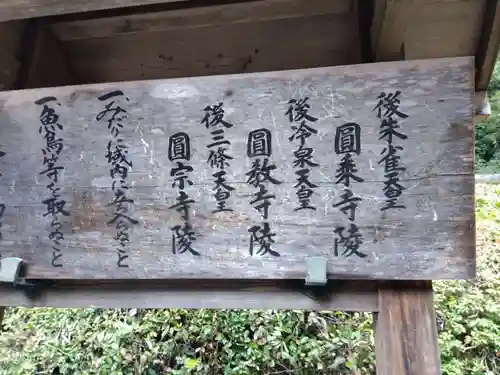 後朱雀天皇
圓乗寺陵
後冷泉天皇
圓教寺陵
後三條天皇
圓宗寺陵
一、みだりに域内に立入らぬこと
一、魚鳥等を取らぬこと
一、